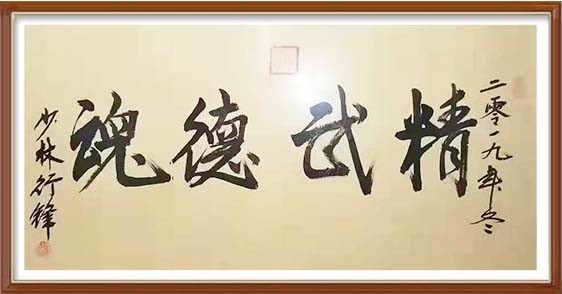 二零一九年冬
精武德魂
少林行锋